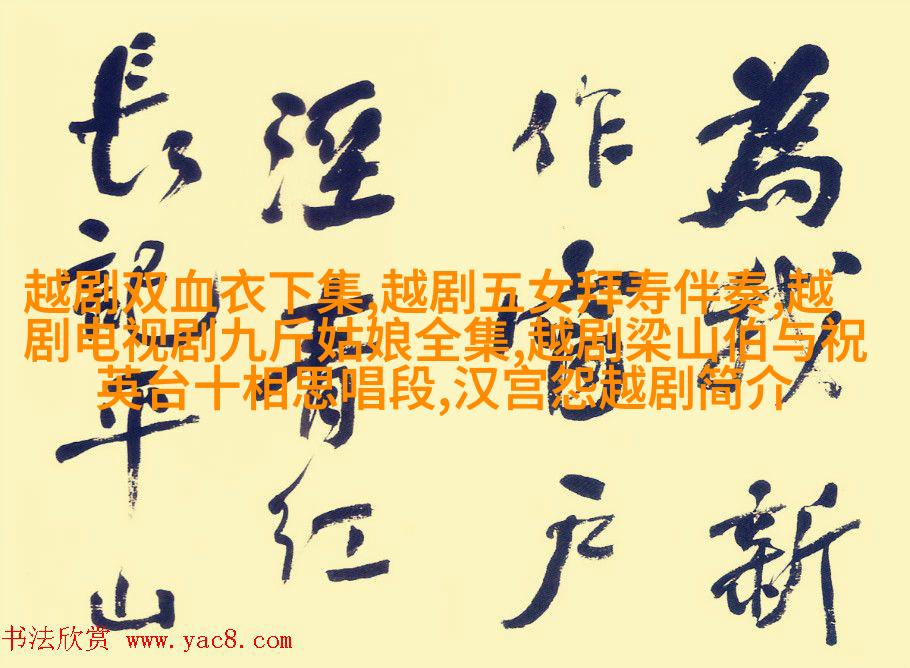 為我新
作窗户
溼青红
長記平山
越剧双血衣下集,越剧五女拜寿伴奏,越
剧电视剧九斤姑娘全集,越剧梁山伯与祝
英台十相思唱段,汉宫怨越剧简介
书法欣赏 www.yac8.com